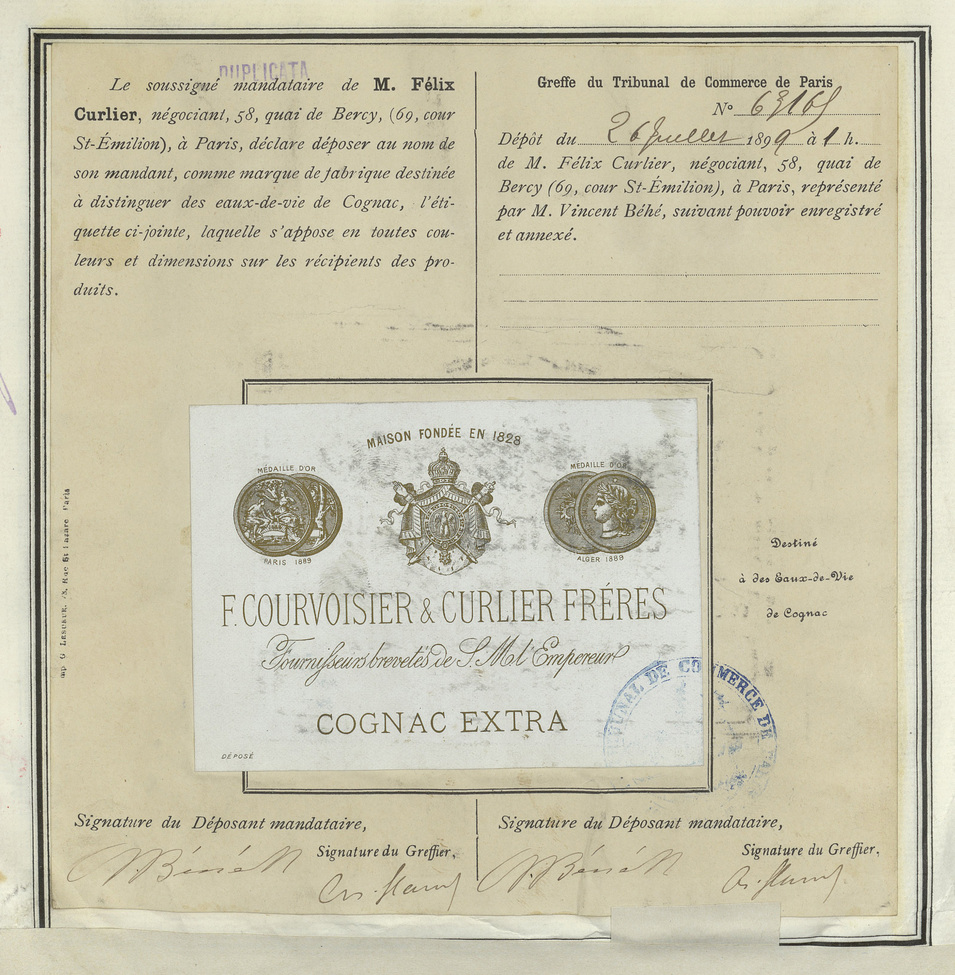 DUPLICATA
Le soussigné mandataire de M. Félix
Curlier, négociant, 58, quai de Bercy, (69, cour
St-Émilion), à Paris, déclare déposer au nom de
son mandant, comme marque de fabrique destinée
à distinguer des eaux-de-vie de Cognac, l'éti-
quette ci-jointe, laquelle s'appose en toutes cou-
leurs et dimensions sur les récipients des pro-
duits.
Greffe du Tribunal de Commerce de Paris
N°
Dépôt du 26 Juillet 1899 à 1 h.
de M. Félix Curlier, négociant, 58, quai de
Bercy (69, cour St-Émilion), à Paris, représenté
par M. Vincent Béhé, suivant pouvoir enregistré
et annexé.
MAISON FONDÉE EN 1828
MÉDAILLE D'OR
PARIS 1889
MÉDAILLE D'OR
ALGER 1889
F. COURVOISIER & CURLIER FRÉRES
Fournisseurs brevetés de S. M. l'Empereur
COGNAC EXTRA
DÉPOSÉ
TRIBUNAL DE COMMERCE DE
Destiné
à des Eaux-de-Vie
de Cognac
Imp. G. LESUEUR, Rue St Lazare Paris
Signature du Déposant mandataire,
Signature du Greffier,
Signature du Déposant mandataire,
Signature du Greffier,